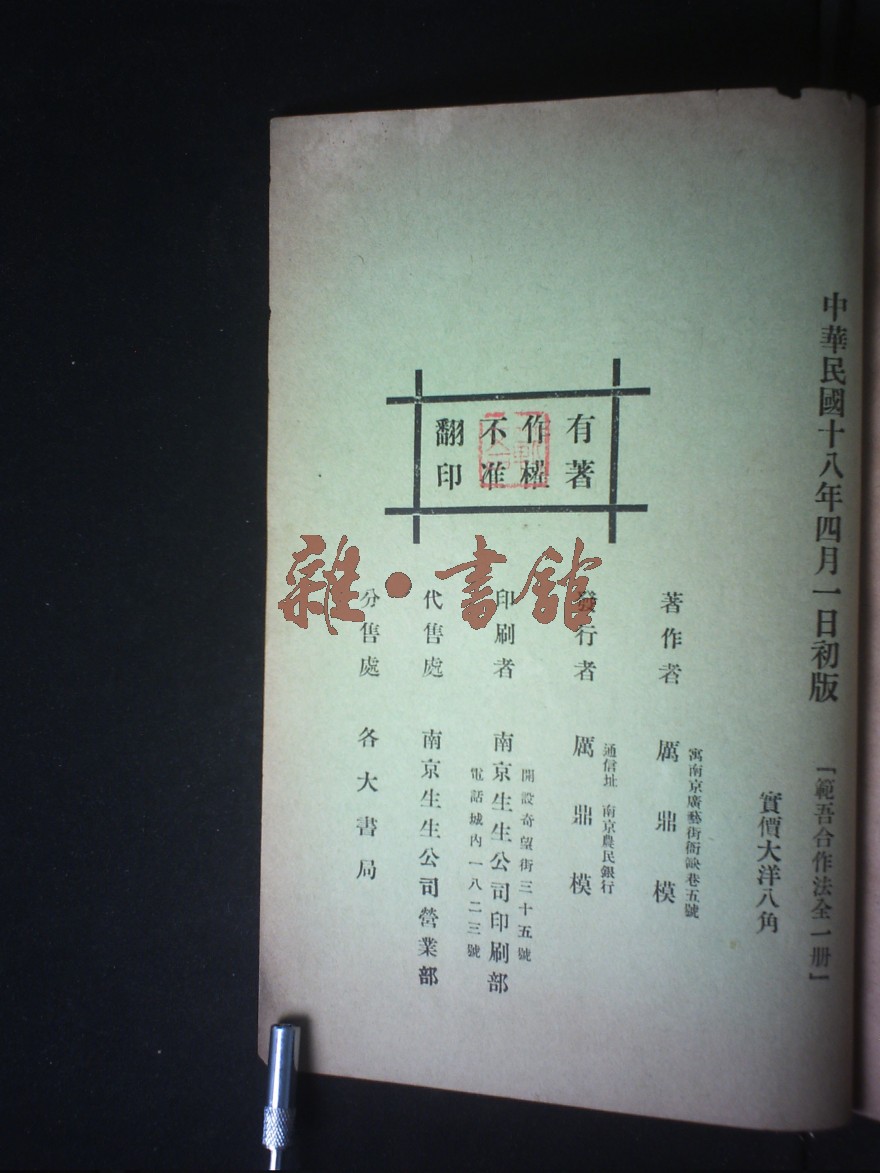 中華民國十八年四月一日初版
「範吾合作法全一册」
實價大洋八角
著作者 厲鼎模
寓南京廣藝街衙缺巷五號
發行者 厲鼎模
通信址 南京農民銀行
印刷者 南京生生公司印刷部
開設奇望街三十五號
電話城內一八二三號
代售處 南京生生公司營業部
分售處 各大書局
有著
作權
不准
翻印
雜·書館